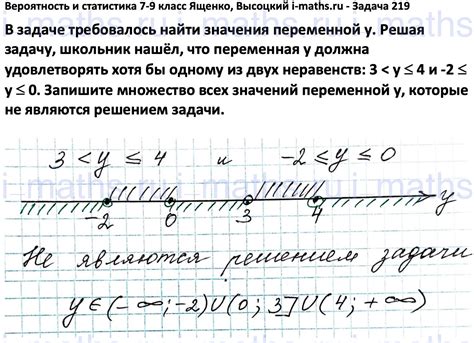 Вероятность и статистика 7-9 класс Ященко, Высоцкий i-maths.ru - Задача 219
В задаче требовалось найти значения переменной у. Решая
задачу, школьник нашёл, что переменная у должна
удовлетворять хотя бы одному из двух неравенств: 3 < y ≤ 4 и -2 ≤
y ≤ 0. Запишите множество всех значений переменной у, которые
не являются решением задачи.
3 < y ≤ 4 и -2 ≤ y ≤ 0
-2 0 3 4 y
Не являются решением задачи
y ∈ (-∞; -2) ∪ (0; 3] ∪ (4; +∞)